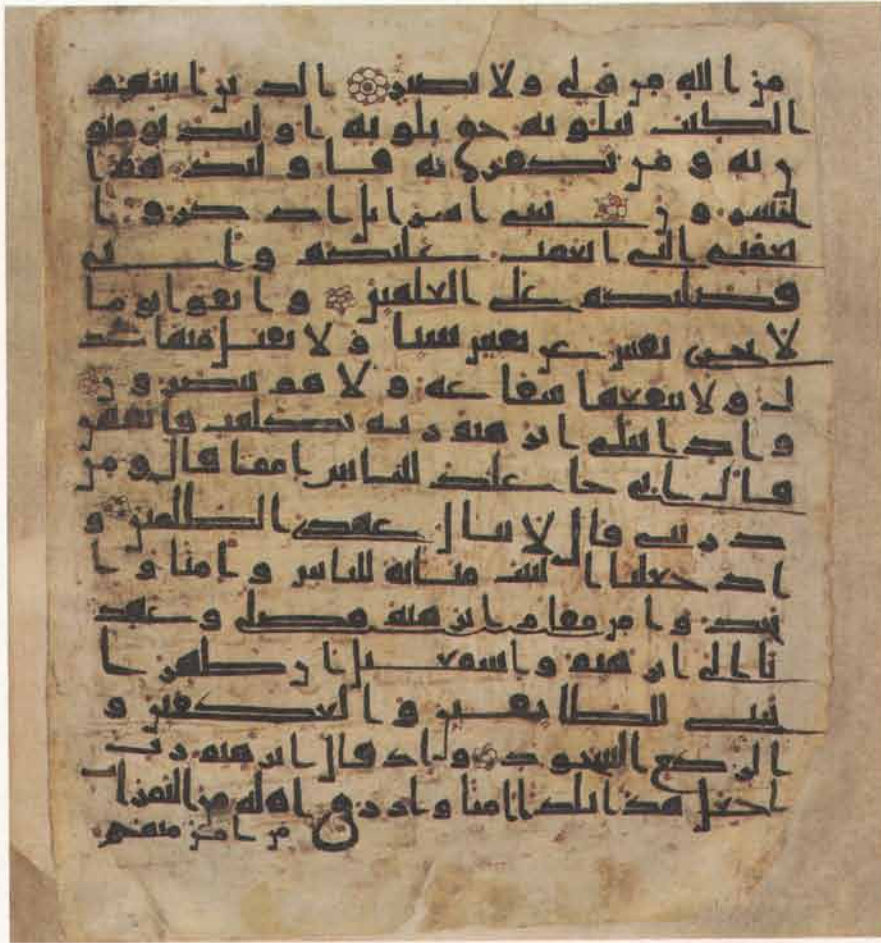 من الله من ولي ولا نصير الذين اتينهم
الكتب يتلونه حق تلوته اولئك يومنو
ن به ومن يكفر به فاولئك هم ا
لخسرون يبني اسرايل اذكروا
نعمتي التي انعمت عليكم واني
فضلتكم على العلمين واتقوا يوما
لا تجزي نفس عن نفس شيا ولا يقبل منها عد
ل ولا تنفعها شفاعة ولا هم ينصرون
واذ ابتلى ابرهم ربه بكلمت فاتمهن
قال اني جاعلك للناس اماما قال ومن
ذريتي قال لا ينال عهدي الظلمين و
اذ جعلنا البيت مثابة للناس وامنا وا
تخذوا من مقام ابرهم مصلى وعهد
نا الى ابرهم واسمعيل ان طهرا
بيتي للطايفين والعكفين و
الركع السجود واذ قال ابرهم رب
اجعل هذا بلدا امنا وارزق اهله من الثمرات
من امن منهم